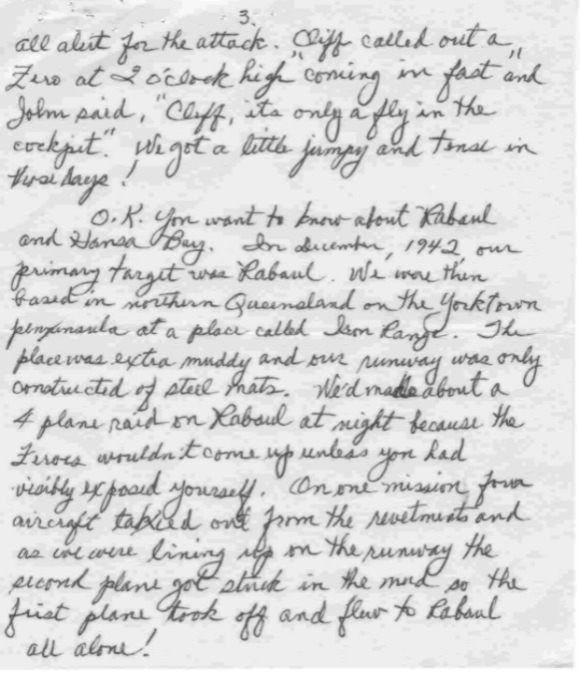 3.
all alert for the attack. Cliff called out a
Zero at 2 o'clock high "coming in fast" and
John said, "Cliff, its only a fly in the
cockpit." We got a little jumpy and tense in
those days!
O.K. you want to know about Rabaul
and Hansa Bay. In December, 1942, our
primary target was Rabaul. We were then
based in northern Queensland on the Yorktown
penyunsula at a place called Iron Range. The
place was extra muddy and our runway was only
constructed of steel mats. We'd made about a
4 plane raid on Rabaul at night because the
Zeroes wouldn't come up unless you had
visibly exposed yourself. On one mission four
aircraft taxied out from the revetments and
as we were lining up on the runway the
second plane got stuck in the mud so the
first plane took off and flew to Rabaul
all alone!